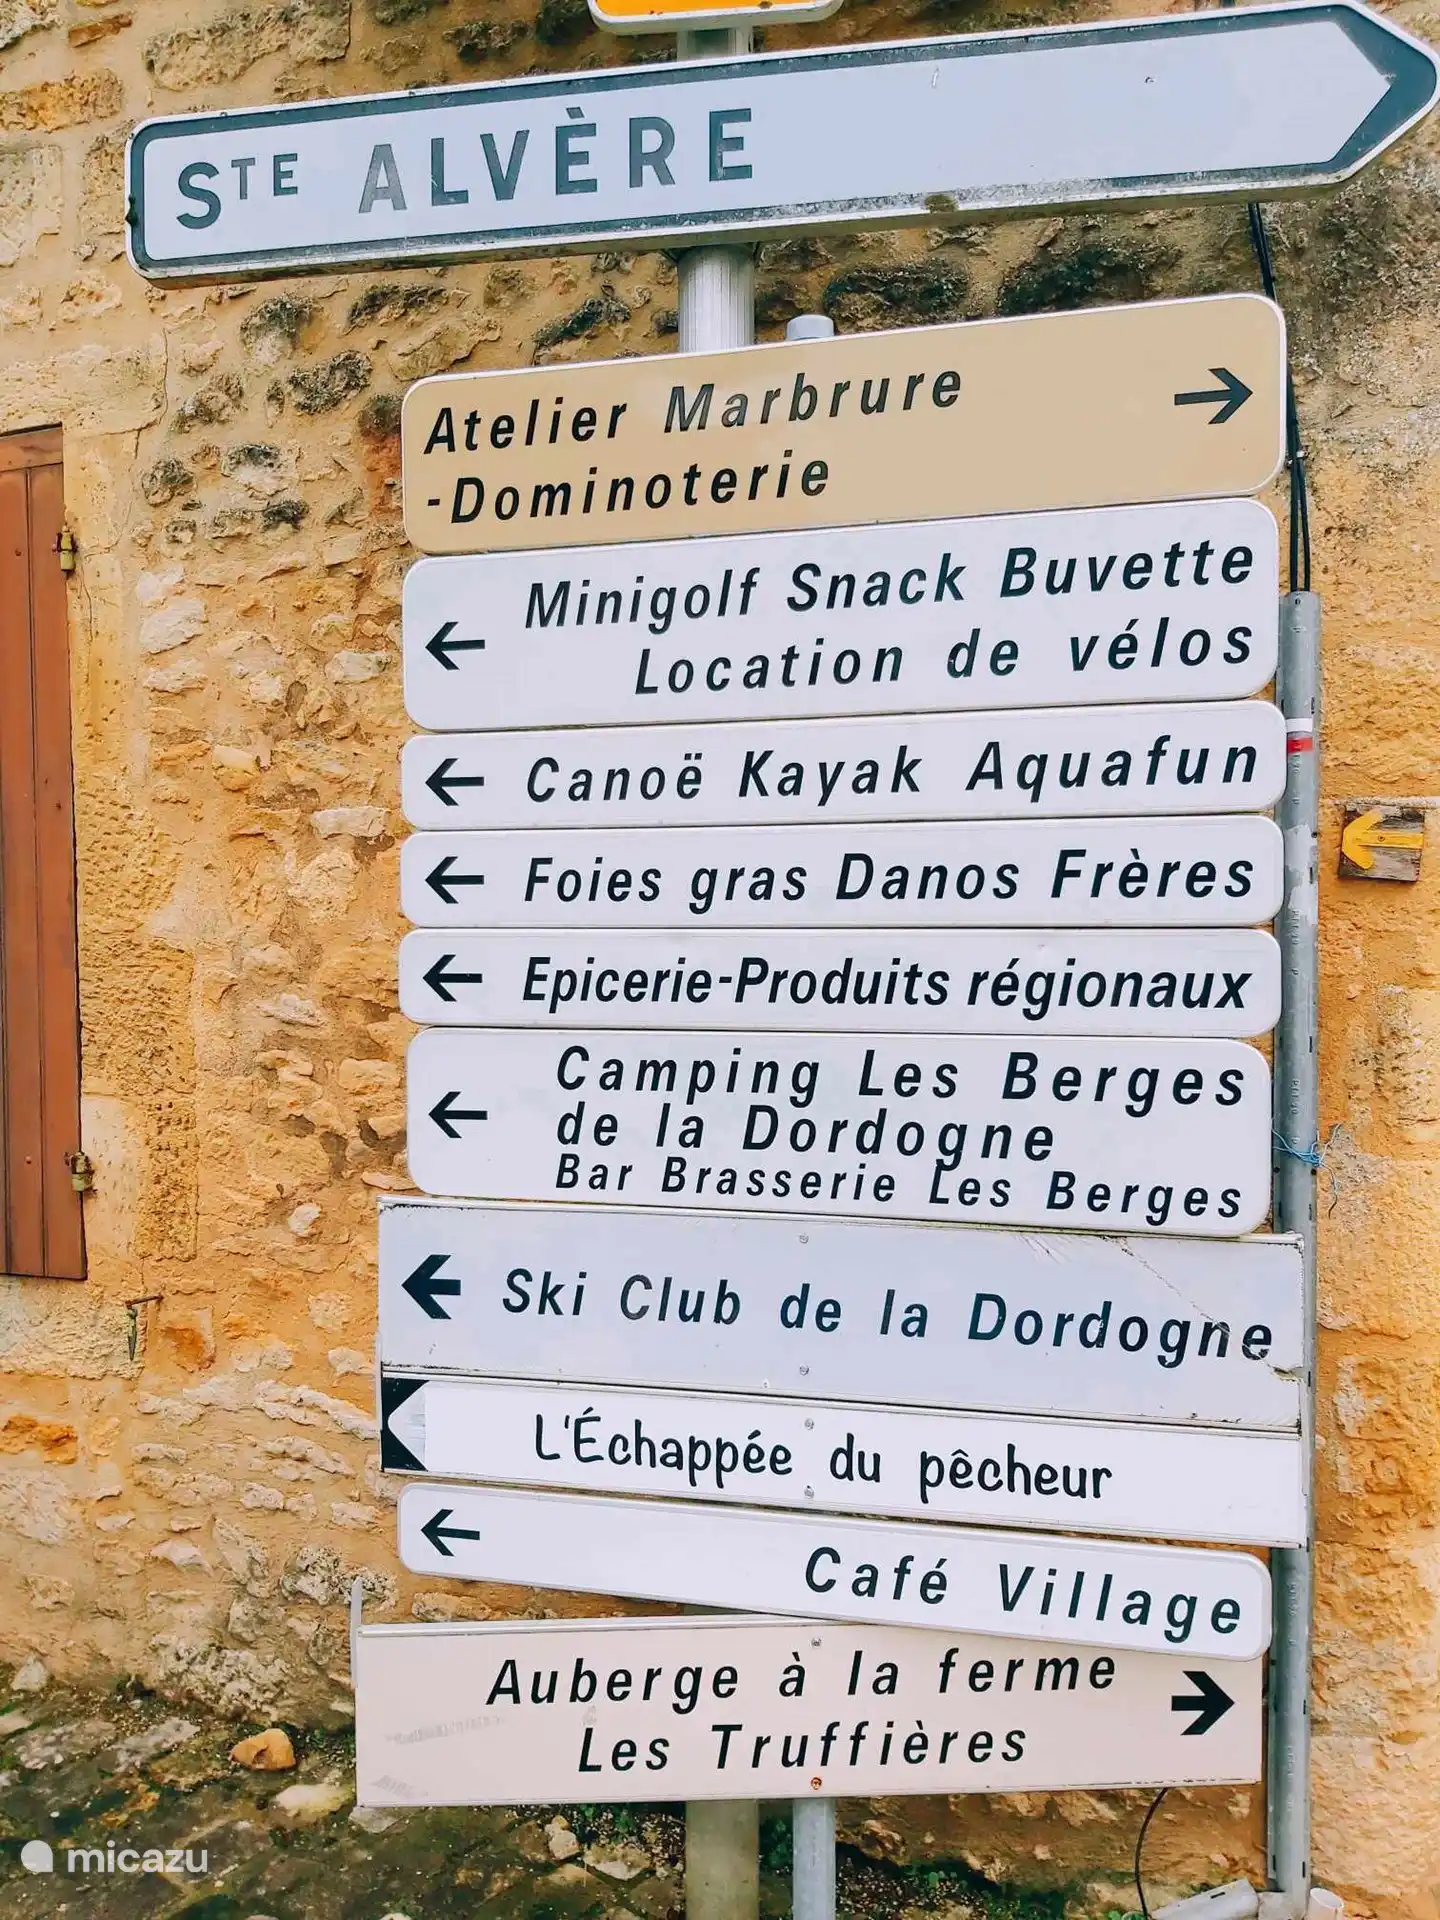 STE ALVÈRE
Atelier Marbrure
-Dominoterie
Minigolf Snack Buvette
Location de vélos
Canoë Kayak Aquafun
Foies gras Danos Frères
Epicerie-Produits régionaux
Camping Les Berges
de la Dordogne
Bar Brasserie Les Berges
Ski Club de la Dordogne
L'Échappée du pêcheur
Café Village
Auberge à la ferme
Les Truffières
micazu